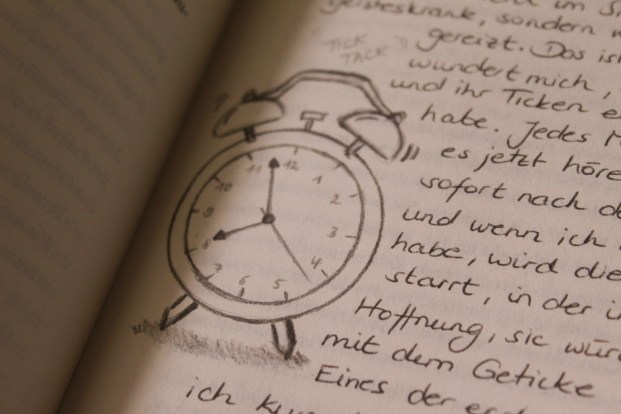 im
geisteskrank, sondern
gereizt. Das
TICK
TACK
wundert mich,
und ihr Ticken
habe. Jedes
es jetzt höre
sofort nach
und wenn ich
habe, wird die
starrt, in der
Hoffnung, sie
mit dem Geticke
Eines der
ich
12
1
2
3
4
5
6
7
8
9
10
11